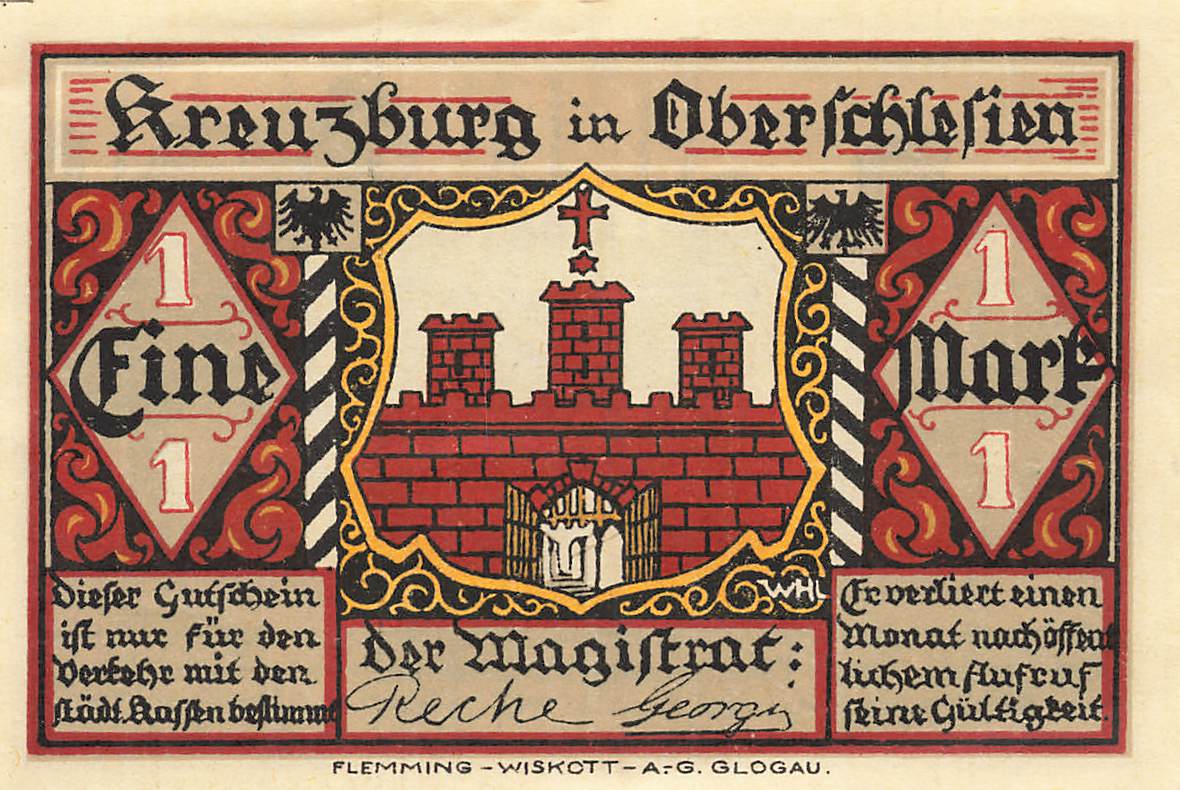 Kreuzburg in Oberschlesien
1
Eine
1
1
Mark
1
WHL
Dieser Gutschein
ist nur für den
Verkehr mit den
städt. Kassen bestimmt
Der Magistrat:
Reche Georgi
Er verliert einen
Monat nach öffent
lichem Aufruf
seine Gültigkeit.
FLEMMING – WISKOTT – A.-G. GLOGAU.